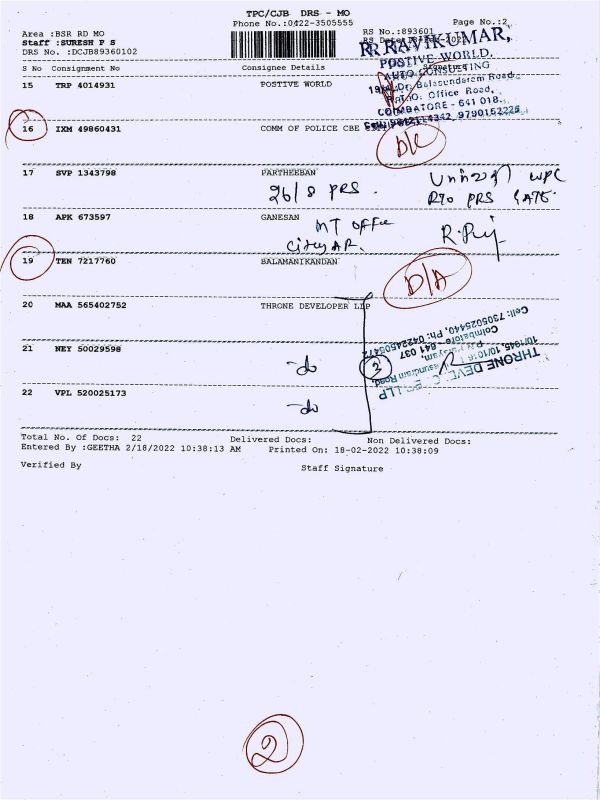 TPC/CJB DRS - MO
Phone No.:0422-3505555
Area :BSR RD MO
RS No.:893601
Page No.:2
Staff :SURESH P S
DRS No. :DCJB89360102
R. RAVIKUMAR,
POSTIVE WORLD,
AUTO CONSULTING
Dr. Balasundaram Road,
R.T.O. Office Road,
COIMBATORE - 641 018.
S No Consignment No Consignee Details Signature
15 TRP 4014931 POSTIVE WORLD
16 IXM 49860431 COMM OF POLICE CBE
D/L
17 SVP 1343798 PARTHEEBAN
26/8 PRS.
WPC
RTO PRS GATE.
18 APK 673597 GANESAN
MT OFFice
City AR.
19 TEN 7217760 BALAMANIKANDAN
D/A
20 MAA 565402752 THRONE DEVELOPER LLP
21 NEY 50029598
-do
22 VPL 520025173
-do
3
THRONE DEVEL LLP
Coimbatore 641 037
Total No. Of Docs: 22 Delivered Docs: Non Delivered Docs:
Entered By :GEETHA 2/18/2022 10:38:13 AM Printed On: 18-02-2022 10:38:09
Verified By Staff Signature
2